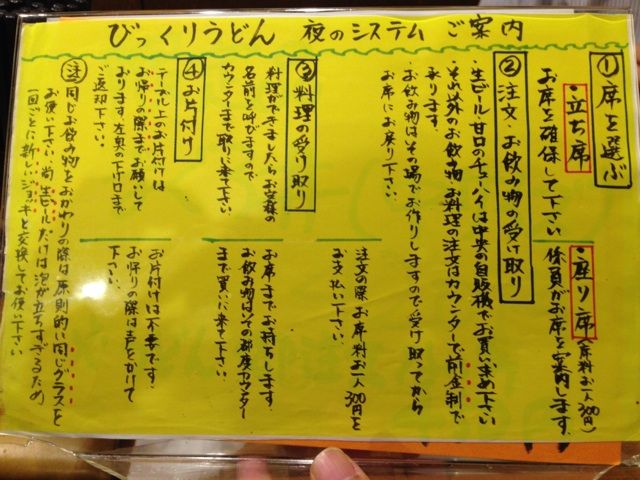 びっくりうどん 夜のシステム ご案内
①席を選ぶ
・立ち席
お席を確保して下さい
・座り席(席料お一人300円)
係員がお席を案内します。
②注文・お飲み物の受け取り
・生ビール・甘口のチューハイは中央の自販機でお買い求め下さい
・それ以外のお飲み物、お料理の注文はカウンターで前金制で
承ります。
・お飲み物はその場でお作りしますので受け取ってから
お席にお戻り下さい。
注文の際、お席料お一人300円を
お支払い下さい。
③料理の受け取り
料理ができましたらお客様の
名前を呼びますので
カウンターまで取りに来て下さい
お席までお持ちします。
お飲み物はその都度カウンター
まで買いに来て下さい。
④お片付け
テーブル上のお片付けは
お帰りの際までお願いして
おります。左奥の下げ口まで
ご返却下さい。
お片付けは不要です。
お帰りの際は声をかけて
下さい。
注 同じお飲み物をおかわりの際は原則的に同じグラスを
お使い下さい。尚、生ビールだけは泡が立ちすぎるため
一回ごとに新しいジョッキと交換してお使い下さい